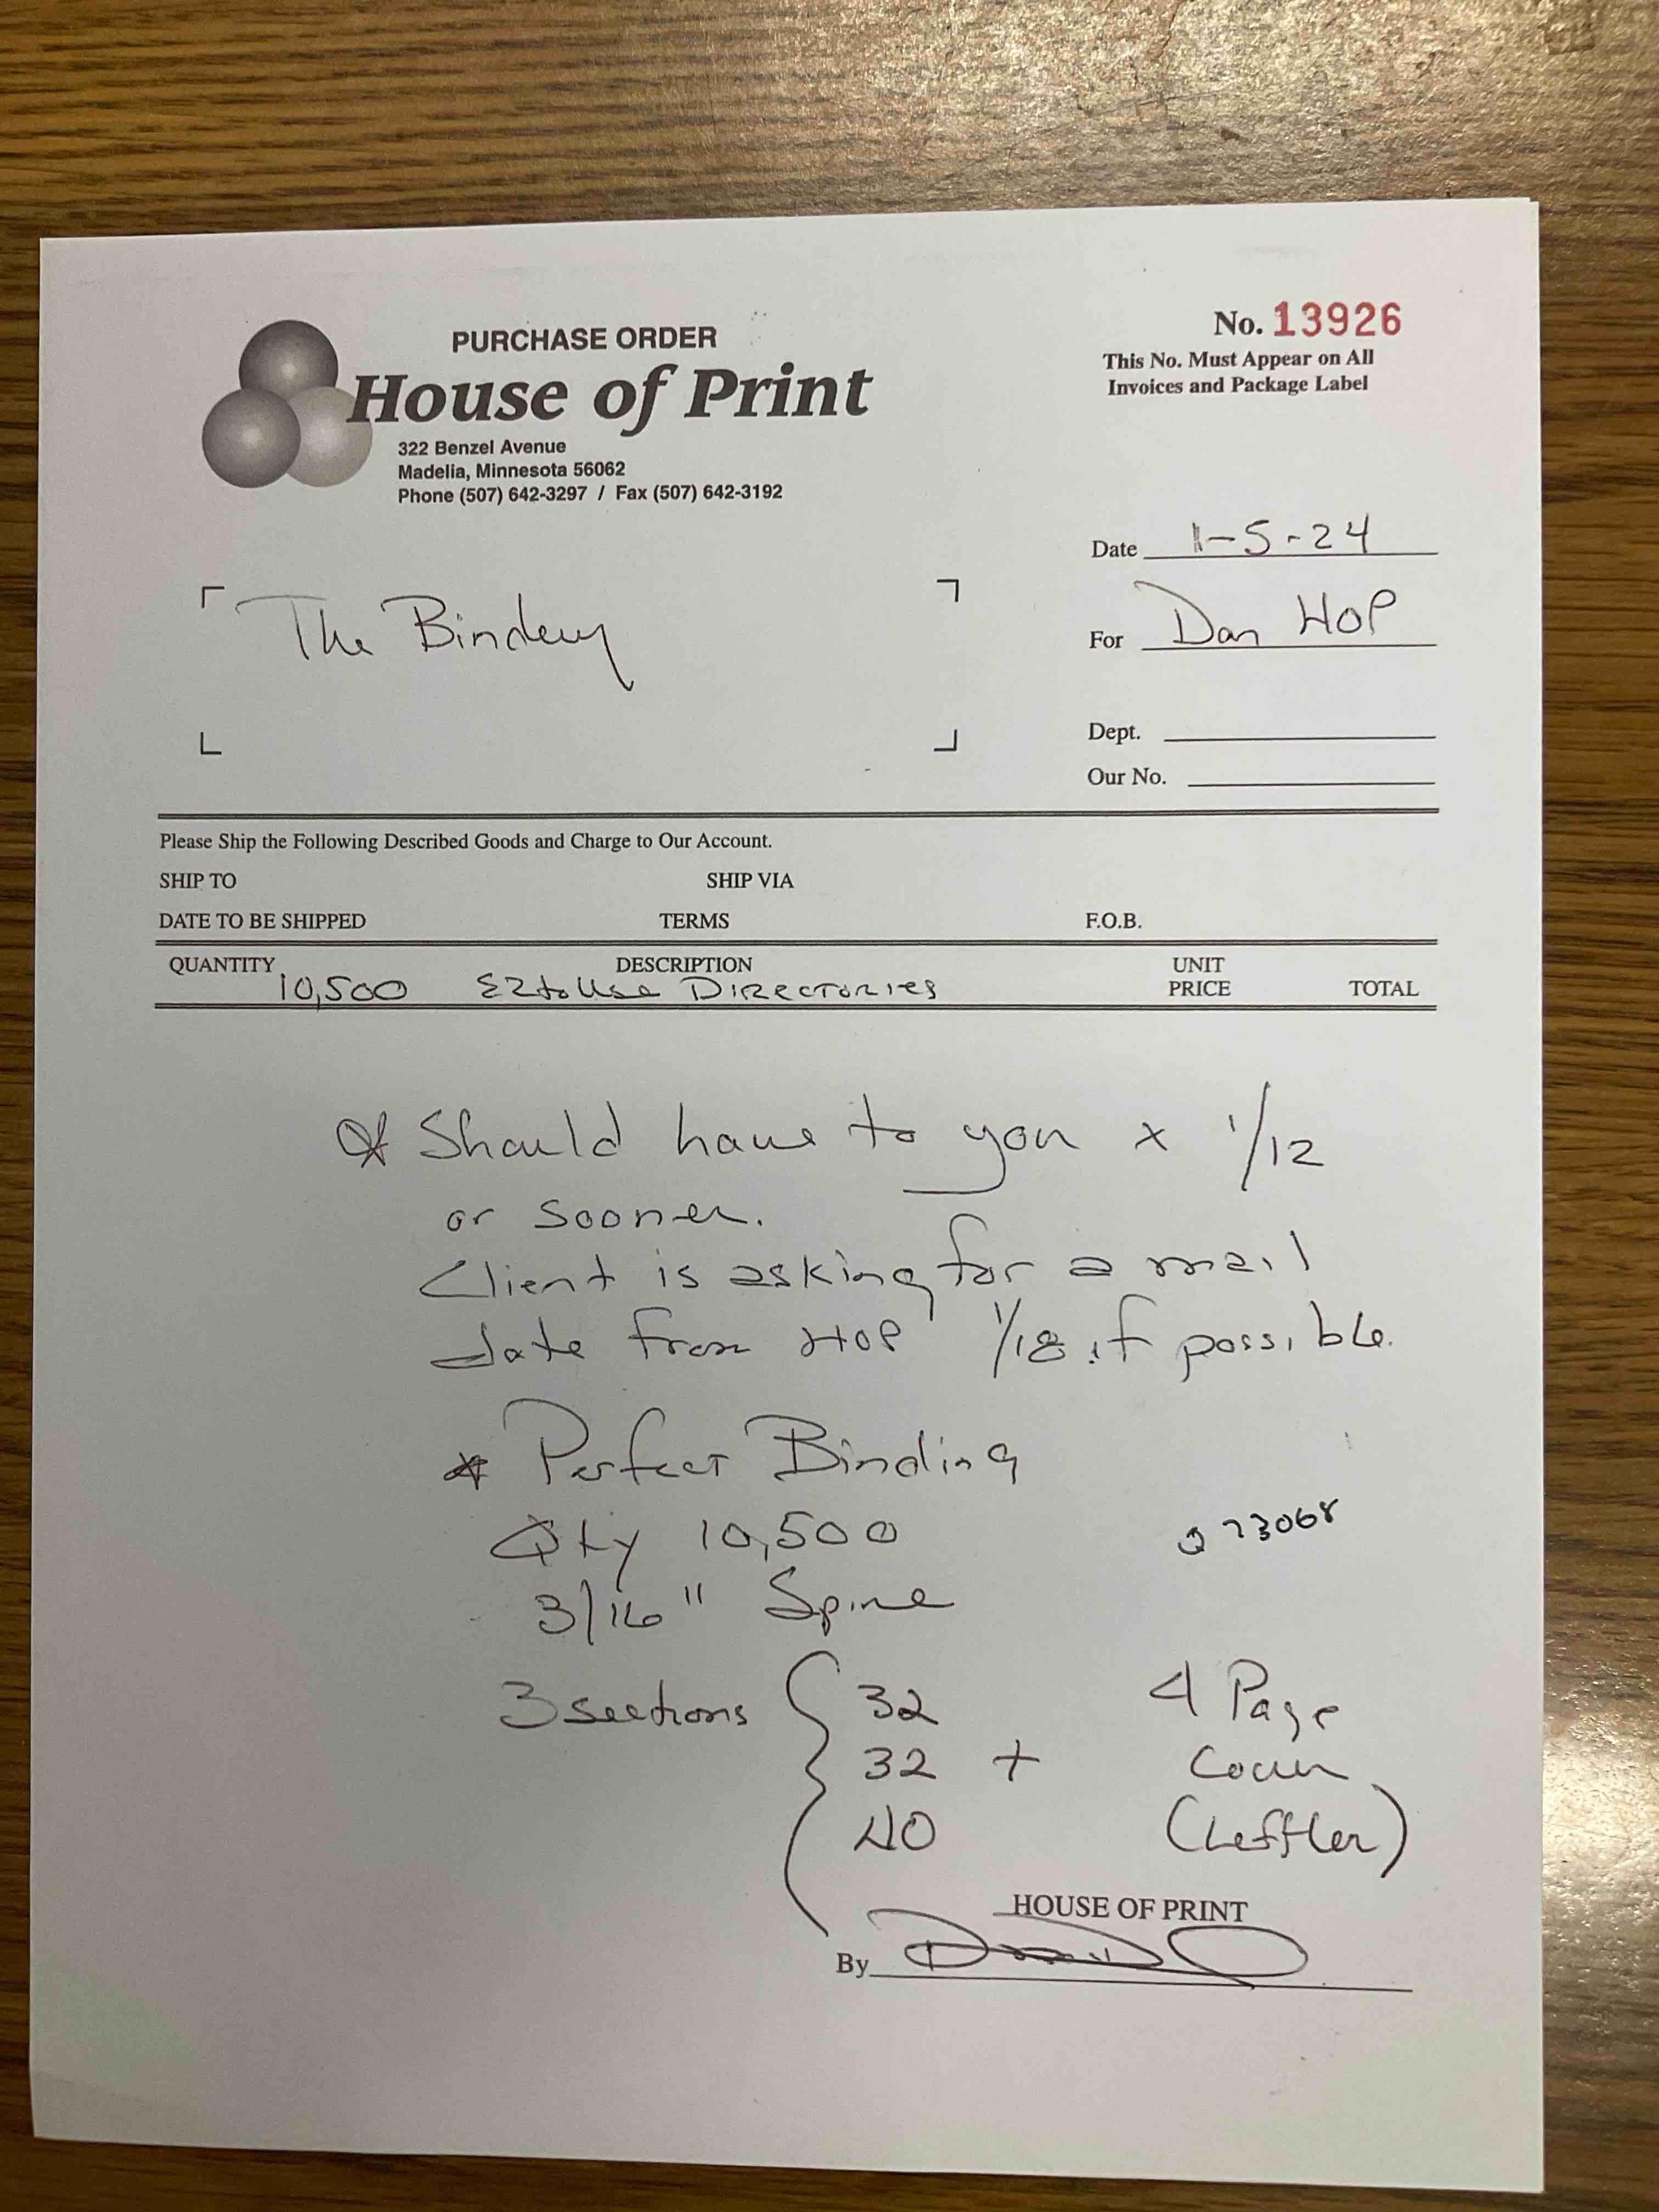 PURCHASE ORDER
No. 13926
House of Print
This No. Must Appear on All
Invoices and Package Label
322 Benzel Avenue
Madelia, Minnesota 56062
Phone (507) 642-3297 / Fax (507) 642-3192
Date 1-5-24
The Bindery
For Dan HOP
Dept.
Our No.
Please Ship the Following Described Goods and Charge to Our Account.
SHIP TO SHIP VIA
DATE TO BE SHIPPED TERMS F.O.B.
QUANTITY DESCRIPTION UNIT PRICE TOTAL
10,500 EZ to Use Directories
* Should have to you x 1/12
or sooner.
Client is asking for a mail
date from HOP 1/18 if possible.
* Perfect Binding
Qty 10,500
3/16" Spine
3 sections { 32 4 Page
32 + Cover
40 (Leffler)
HOUSE OF PRINT
By